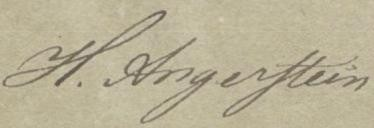 H. Angerstein